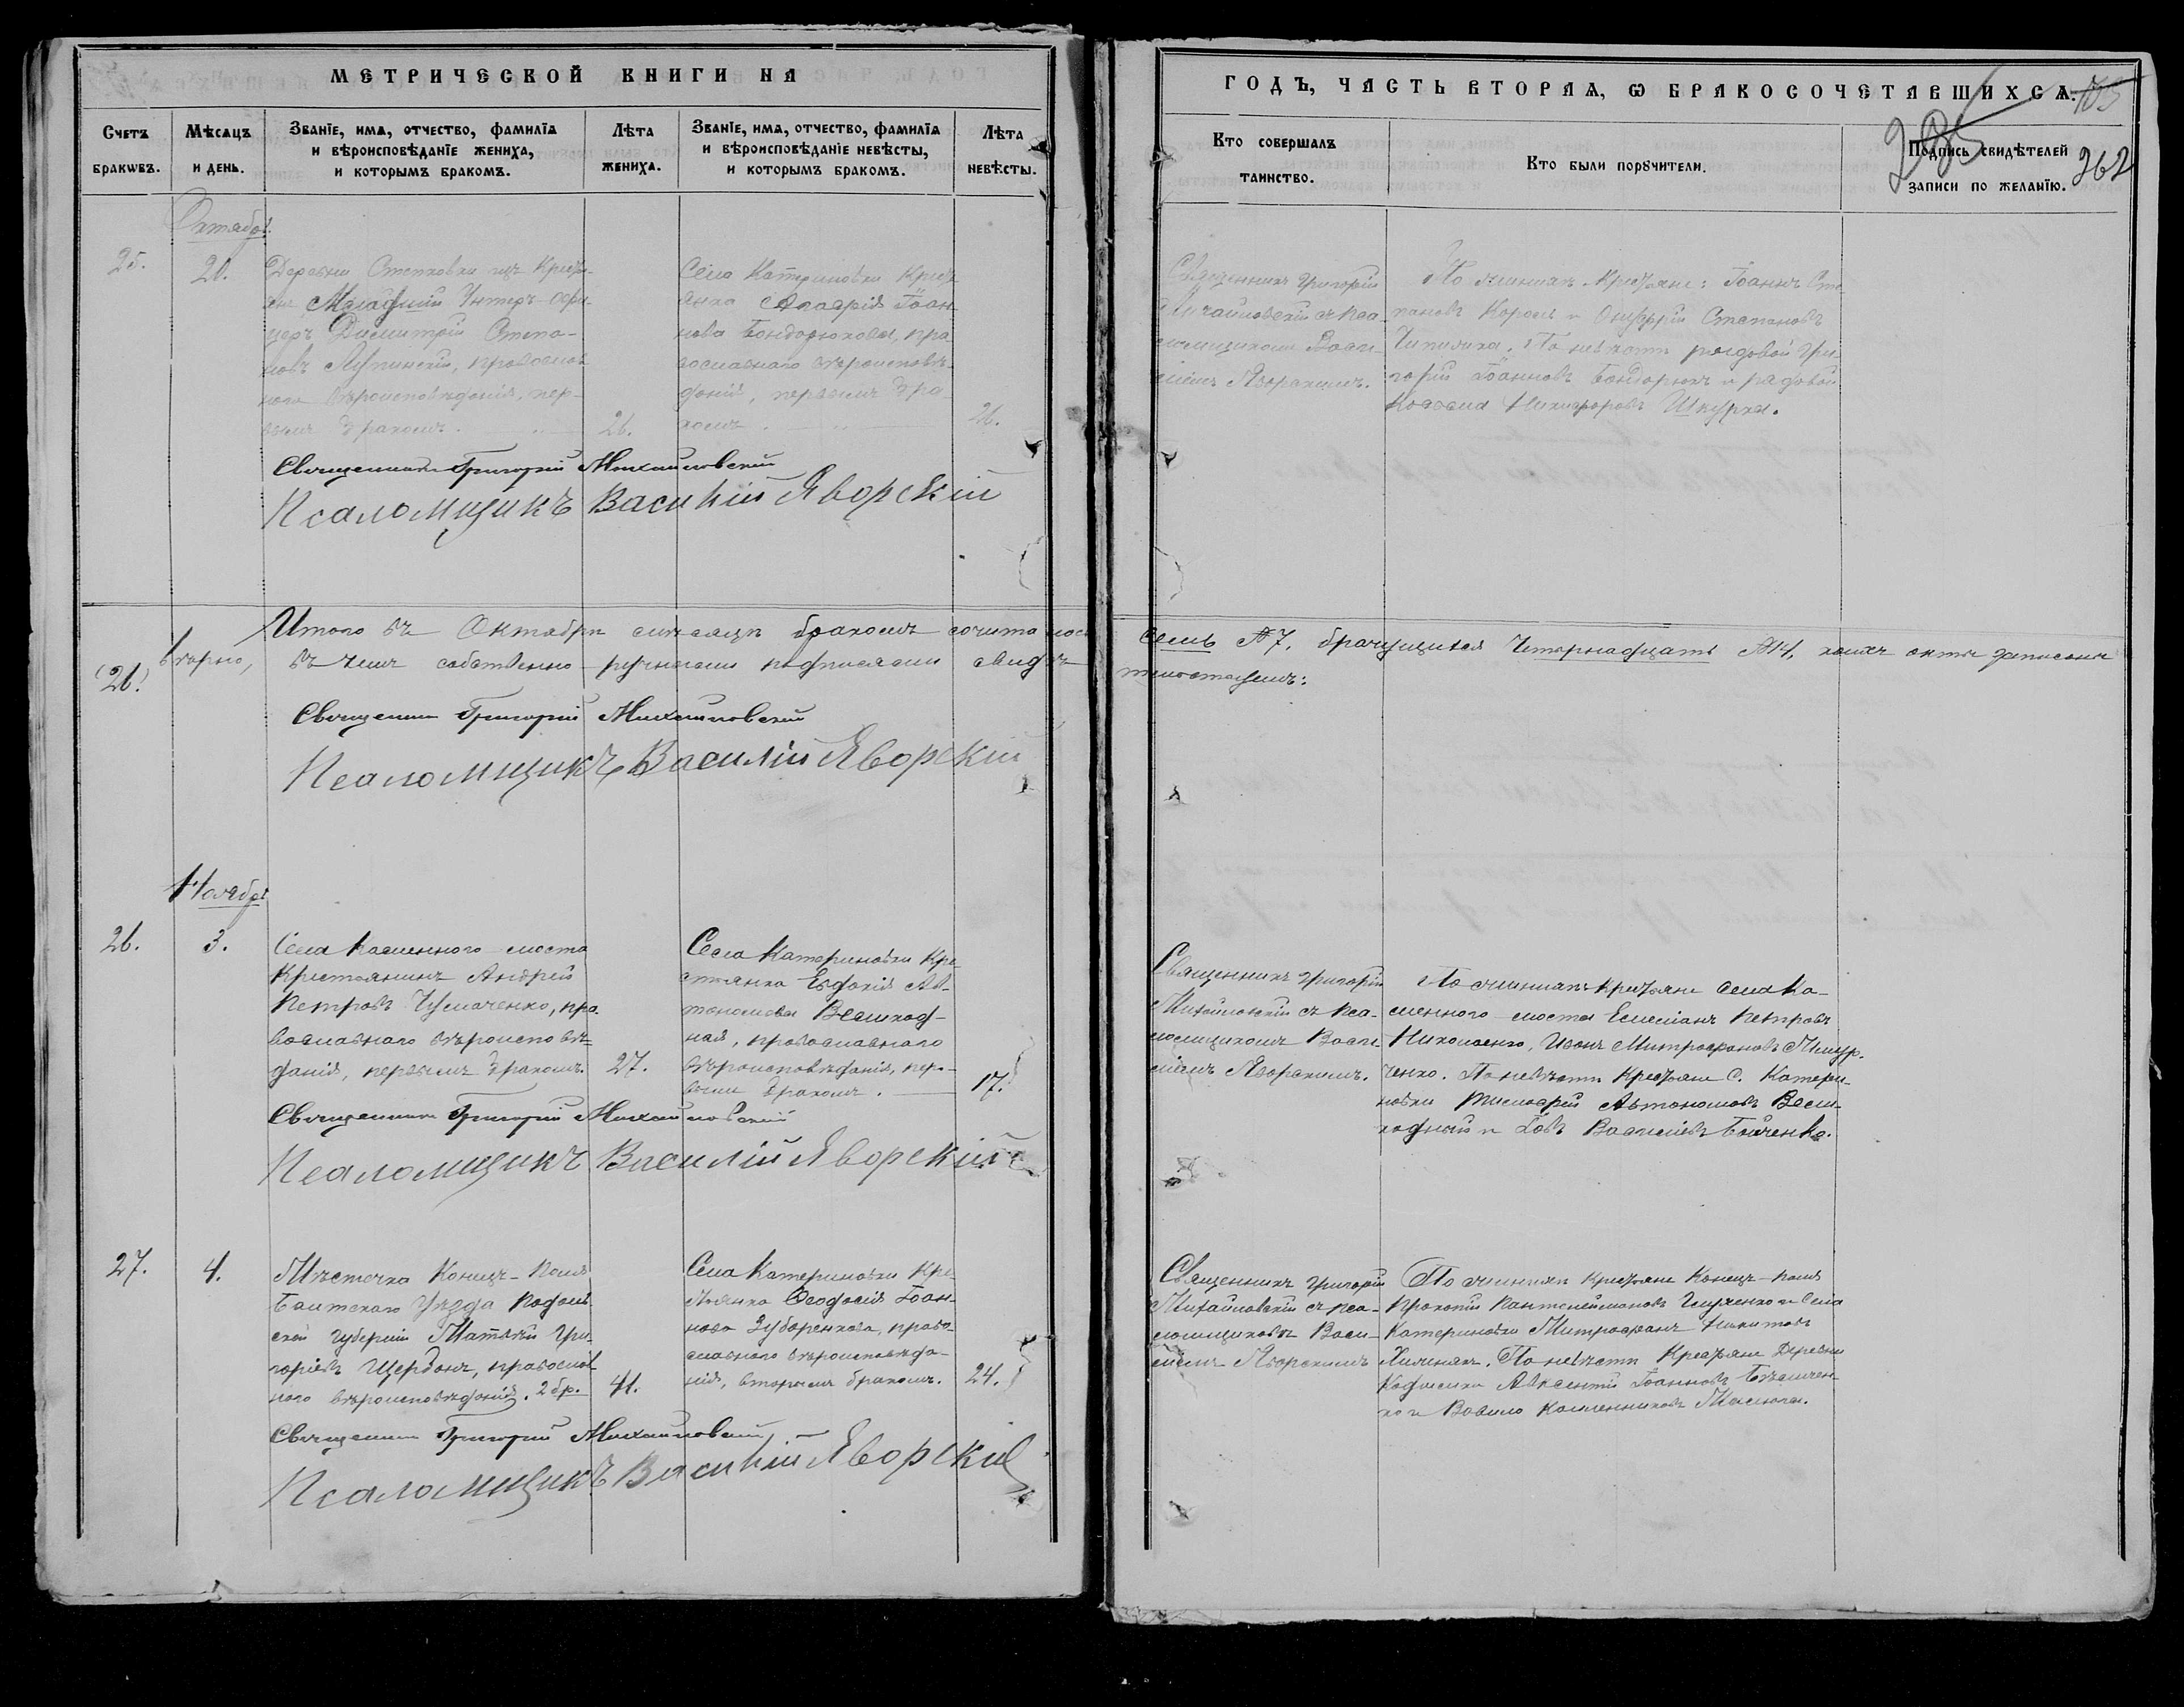 МЕТРИЧЕСКОЙ КНИГИ НА
Счетъ браковъ.
Мѣсяцъ и день.
Званїе, имѧ, отчество, фамилїѧ
и вѣроисповѣданїе жениха,
и которымъ бракомъ.
Лѣта
жениха.
Званїе, имѧ, отчество, фамилїѧ
и вѣроисповѣданїе невѣсты,
и которымъ бракомъ.
Лѣта
невѣсты.
Октября
25.
20.
Деревни Степковки изъ кресть-
янъ Младшій Унтеръ-офи-
церъ Димитрій Степа-
новъ Лупинскій, православ-
наго вѣроисповѣданія, пер-
вымъ бракомъ.
26.
Села Катериновки кресть-
янка Іоан-
нова Бондорюкова, пра-
вославнаго вѣроисповѣ-
данія, первымъ бра-
комъ.
Священникъ Григорій Михайловскій
Псаломщикъ Василій Яворскій
Итого въ Октябрѣ мѣсяцѣ бракомъ сочталось
вѣрно, въ чемъ собственно-ручными подписями свидѣ-
Священникъ Григорій Михайловскій
Псаломщикъ Василій Яворскій
Ноября
26.
3.
Села Каменного моста
Крестьянинъ Андрей
Петровъ Чумаченко, пра-
вославнаго вѣроисповѣ-
данія, первымъ бракомъ.
27.
Села Катериновки Кре-
стьянка Евдокія Ав-
тономова Великод-
ная, православнаго
вѣроисповѣданія, пер-
вымъ бракомъ.
17.
Священникъ Григорій Михайловскій
Псаломщикъ Василій Яворскій
27.
4.
Мѣстечка Конецъ-Поля
Балтскаго Уѣзда Подоль-
ской Губерніи Матвѣй Гри-
горіевъ Щербанъ, православ-
наго вѣроисповѣданія. 2 бр.
41.
Села Катериновки Кре-
стьянка Ѳеодосія Іоан-
нова Зубаренкова, право-
славнаго вѣроисповѣда-
нія, вторымъ бракомъ.
24.
Священникъ Григорій Михайловскій
Псаломщикъ Василій Яворскій
ГОДЪ, ЧАСТЬ ВТОРАѦ, Ѡ БРАКОСОЧЕТАВШИХСѦ.
262
Кто совершалъ
таинство.
Кто были порꙋчители.
Подпись свидѣтелей
записи по желанїю.
Священникъ Григорій
Михайловскій съ пса-
ломщикомъ Васи-
ліемъ Яворскимъ.
По женихѣ крестьяне: Іоаннъ Сте-
пановъ Король и Онуфрій Степановъ
По невѣстѣ рядовой Гри-
горій Іоанновъ Бондорюкъ и рядовой
Никифоровъ Шкурка.
семь № 7. брачущихся Четырнадцать № 14, коихъ акты записаны
тельствуемъ:
Священникъ Григорій
Михайловскій съ пса-
ломщикомъ Васи-
ліемъ Яворскимъ.
По женихѣ крестьяне села Ка-
менного моста Емеліанъ Петровъ
Николаенко, Иванъ Митрофановъ
По невѣстѣ Крестьяне С. Катери-
новки Автономовъ Вели-
кодный и Іовъ Василіевъ Бойченко.
Священникъ Григорій
Михайловскій съ пса-
ломщикомъ Васи-
ліемъ Яворскимъ
По женихѣ крестьяне Конецъ-поля
Прокопій Пантелеймоновъ и Села
Катериновки Митрофанъ Никитовъ
По невѣстѣ Крестьяне Деревни
Авксентій Іоанновъ
и Вавило